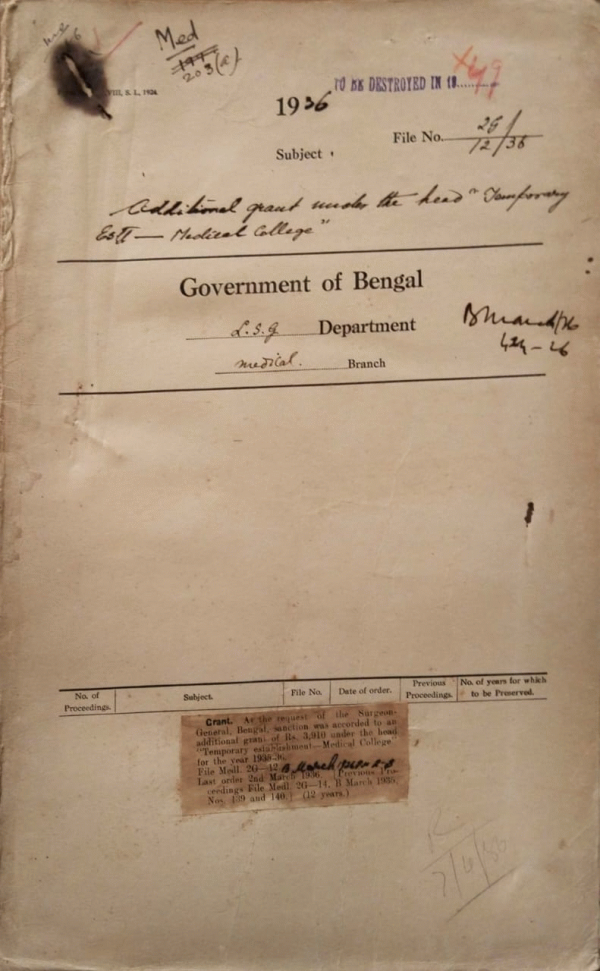 Med
203(a)
VIII, S. I., 1936
TO BE DESTROYED IN 19..........
x49
1936
File No. 2G/
12/36
Subject
Additional grant under the head "Temporary
Estt — Medical College"
Government of Bengal
L.S.G Department
medical. Branch
B March/36
No. of
Proceedings.
Subject.
File No.
Date of order.
Previous
Proceedings.
No. of years for which
to be Preserved.
Grant. At the request of the Surgeon-
General, Bengal, sanction was accorded to an
additional grant of Rs. 3,910 under the head
"Temporary establishment—Medical College"
for the year 1935-36.
File Medl. 2G—12 B March
Last order 2nd March 1936. (Previous Pro-
ceedings File Medl. 2G—14, B March 1935,
Nos. 139 and 140.) (12 years.)
7/6/36